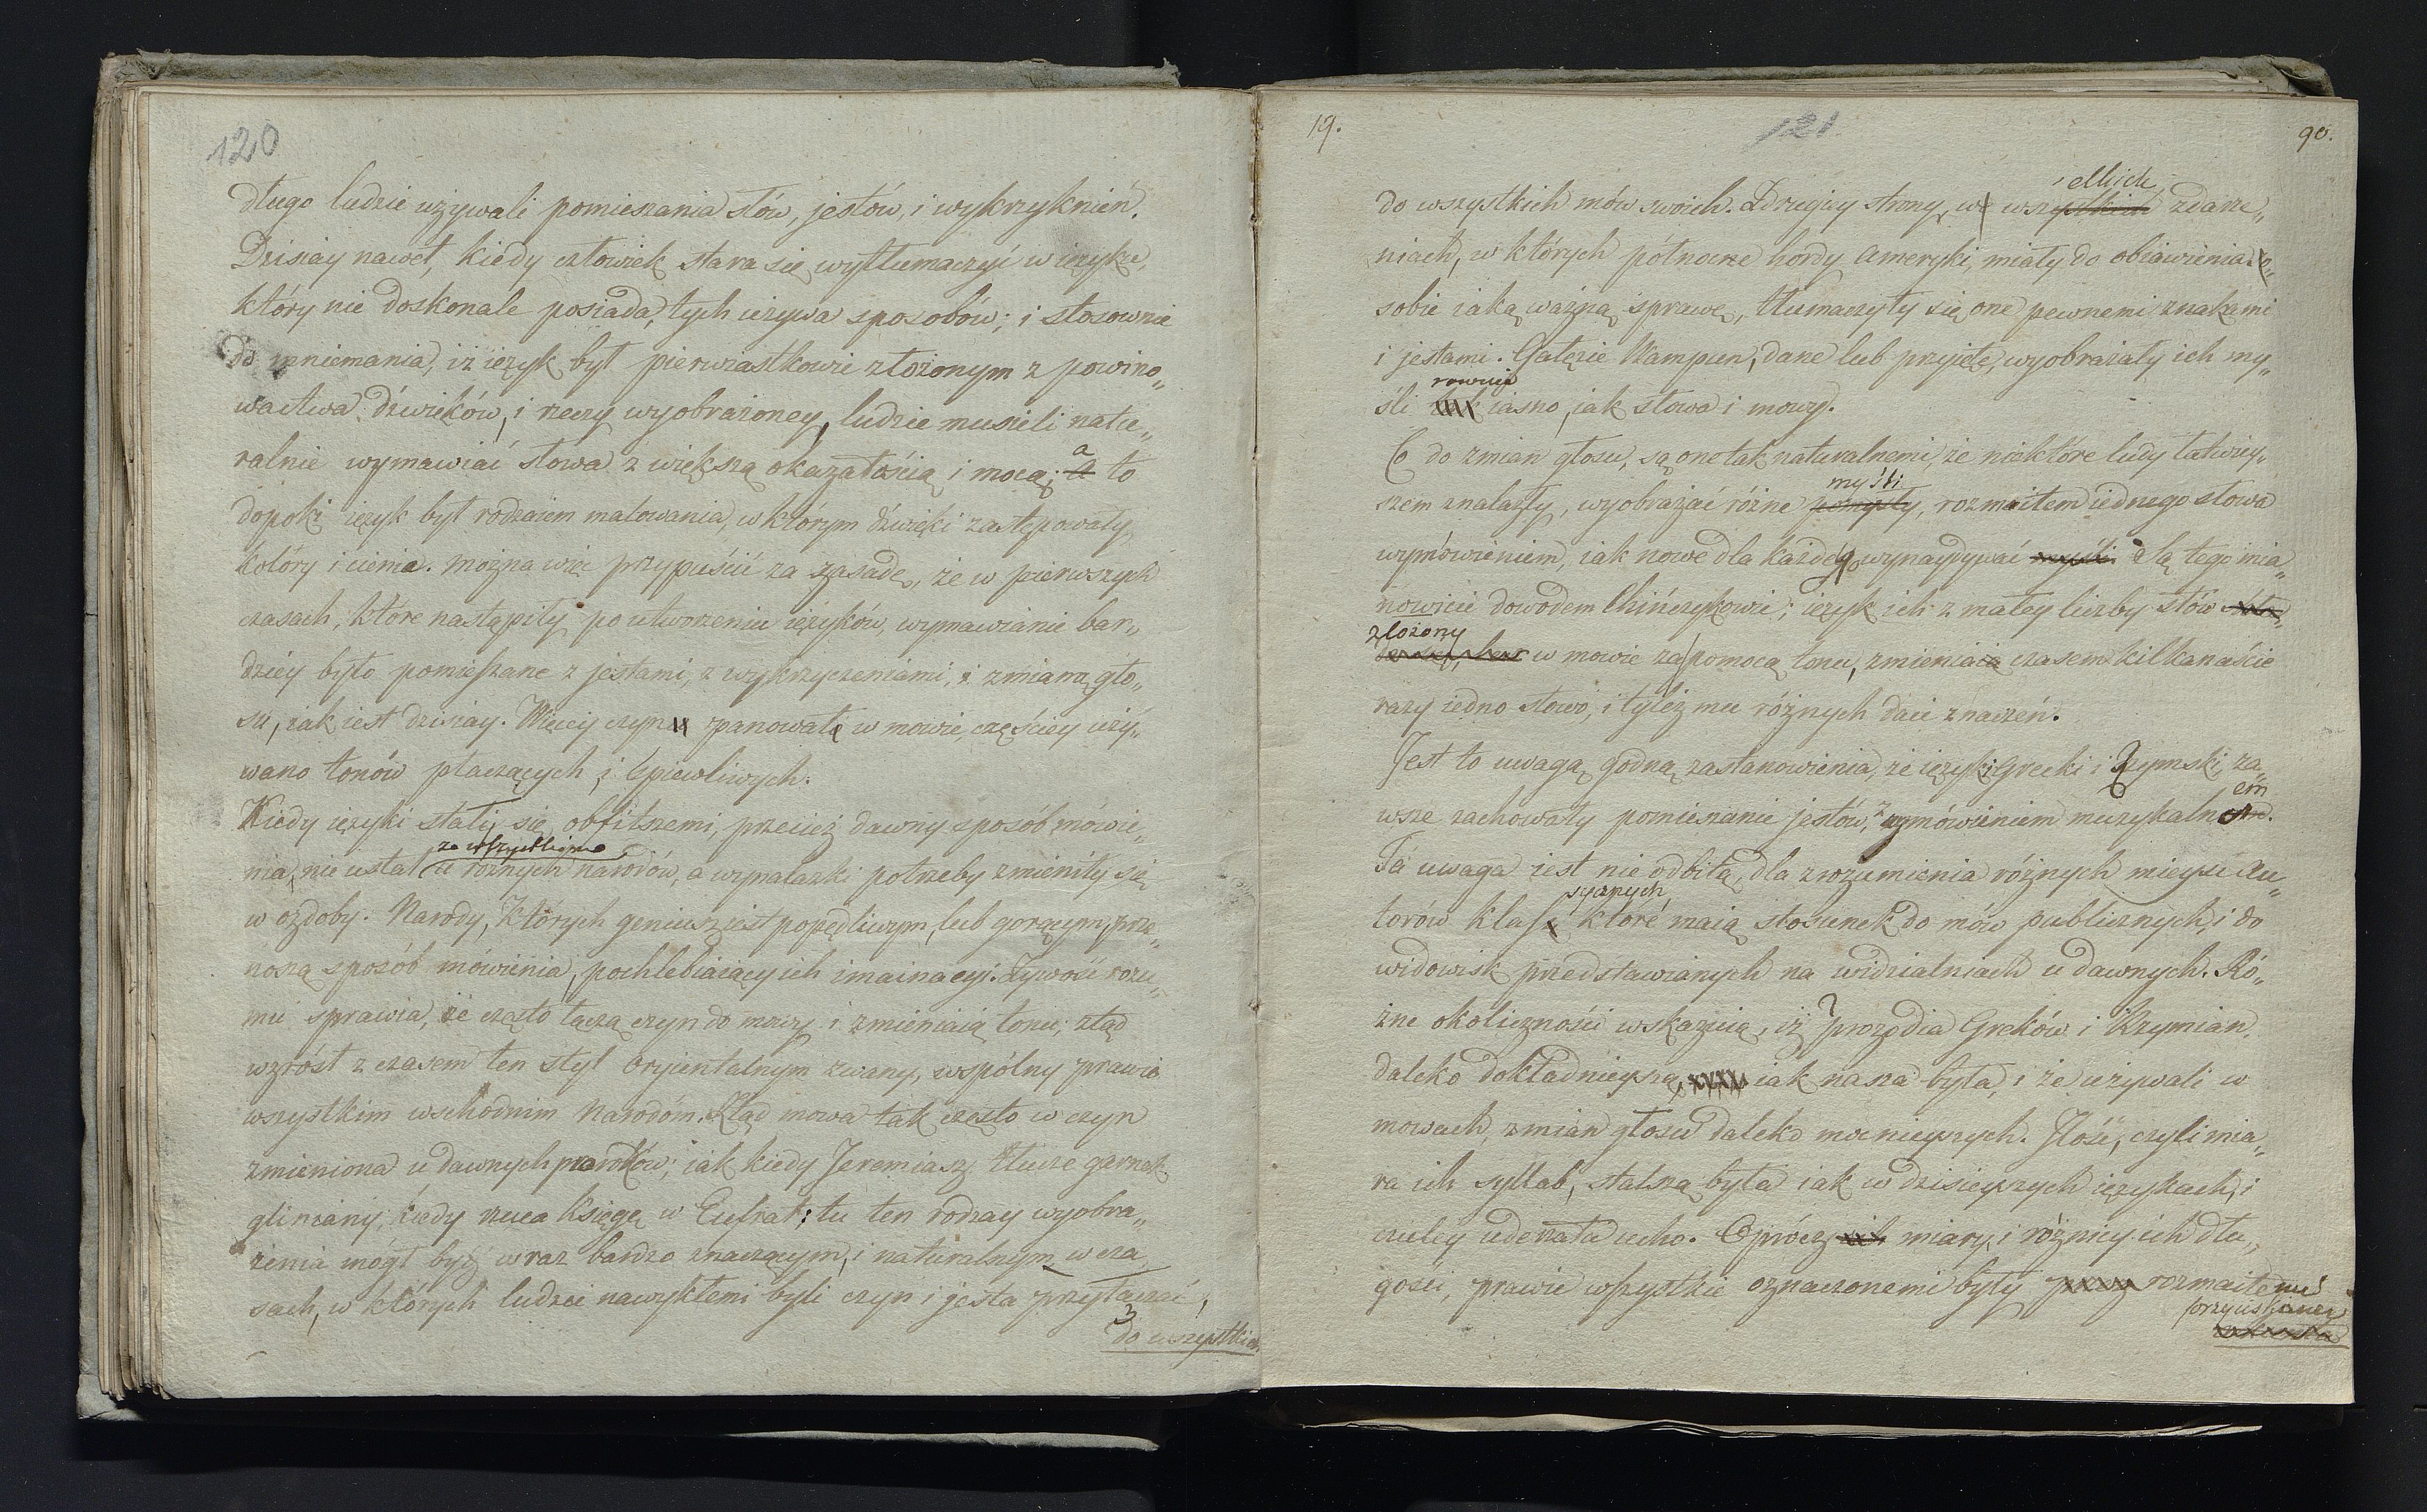 120
długo ludzie używali pomieszania słów, jestów, i wykrzyknień.
Dzisiay nawet, kiedy człowiek stara się wytłumaczyć w ięzyku,
który nie doskonale posiada, tych używa sposobów; i stosownie
do mniemania, iż ięzyk był pierwiastkowie złożonym z powino„
wactwa dźwięków, i rzeczy wyobrażoney, ludzie musieli natu„
ralnie wymawiać słowa z większą okazałością i mocą; a to
dopoki ięzyk był rodzaiem malowania, w którym dźwięki zastępowały
kolóry i cienia. można więc przypuścić za zasadę, że w pierwszych
czasach, które nastąpiły po utworzeniu ięzyków, wymawianie bar„
dziéy było pomieszane z jestami, z wykrzyczeniami, i zmianą gło„
su, iak iest dzisiay. Więcey czynu panowało w mowie, częściey uży„
wano tonów płaczących i śpiewliwych.
Kiedy ięzyki stali się obfitszemi, przecież dawny sposób mówie„
ze wszystkiem
nia, nie ustał u różnych narodów, a wynalazki potrzeby zmieniły się
w ozdoby. Narody, których geniusz iest popędliwym, lub gorącym, prze„
noszą sposób mówienia, pochlebiaiący ich imainacyi. Żywość rozu„
mu sprawia, że często łączą czyn do mowy i zmieniaią tonu; ztąd
wzróst z czasem ten styl Oryientalnym zwany, wspólny prawie
wszystkim wschodnim Narodóm. Ztąd mowa tak często w czyn
zmieniona u dawnych proroków; iak kiedy Jeremiasz tłucze garnek
gliniany, kiedy rzuca księgę w Eufrat: tu ten rodzay wyobra„
żenia mógł być wraz bardzo znaczącym, i naturalnym w cza„
sach, w których ludzie nawykłemi byli czyn i jesta przyłaczać,
do wszystkich
19.
121
90.
elkich
do wszystkich mów swoich. Z drugiey strony, w wszystkich zdarze„
niach, w których północne hordy Ameryki, miały do obiawienia
sobie iaką ważną sprawę, tłumaczyły się one pewnemi znakami
i jestami. Gałęzie Wampun, dane lub przyięte, wyobrażały ich my„
rownie
śli iasno, jak słowa i mowy.
Co do zmian głosu, są one tak naturalnemi, że niektóre ludy łatwiey„
myśli
szem znalazły, wyobrażać różne pomysły, rozmaitem iednego słowa
wymówieniem, iak nowe dla każdego wynaydywać myśli. Są tego mia„
nowicie dowodem Chińczykowie; ięzyk ich z małey liczby słów
złożony
w mowie za pomocą tonu, zmieniaią czasem kilkanaście
razy iedno słowo, i tyleż mu różnych daie znaczeń.
Jest to uwagą godną zastanowienia, że ięzyki Grecki i Rzymski, za„
em
wsze zachowały pomieszanie jestów, z wymówieniem muzykaln
Ta uwaga iest nie odbita, dla zrozumienia różnych mieysc Au„
sycznych
torów klas które maią stosunek do mów publicznych, i do
widowisk przedstawianych na widzialniach u dawnych. Ró„
żne okoliczności wskazuią, iż prozodia Greków i Rzymian,
daleko dokładnieyszą iak nasza była, i że używali w
mowach, zmian głosu daleko mocnieyszych. Ilość, czyli mia„
ra ich syllab, stalszą była iak w dzisieyszych ięzykach, i
czuley uderzała ucho. Oprócz miary, i różnicy ich dłu„
gości, prawie wszystkie oznaczonemi były rozmaitemi